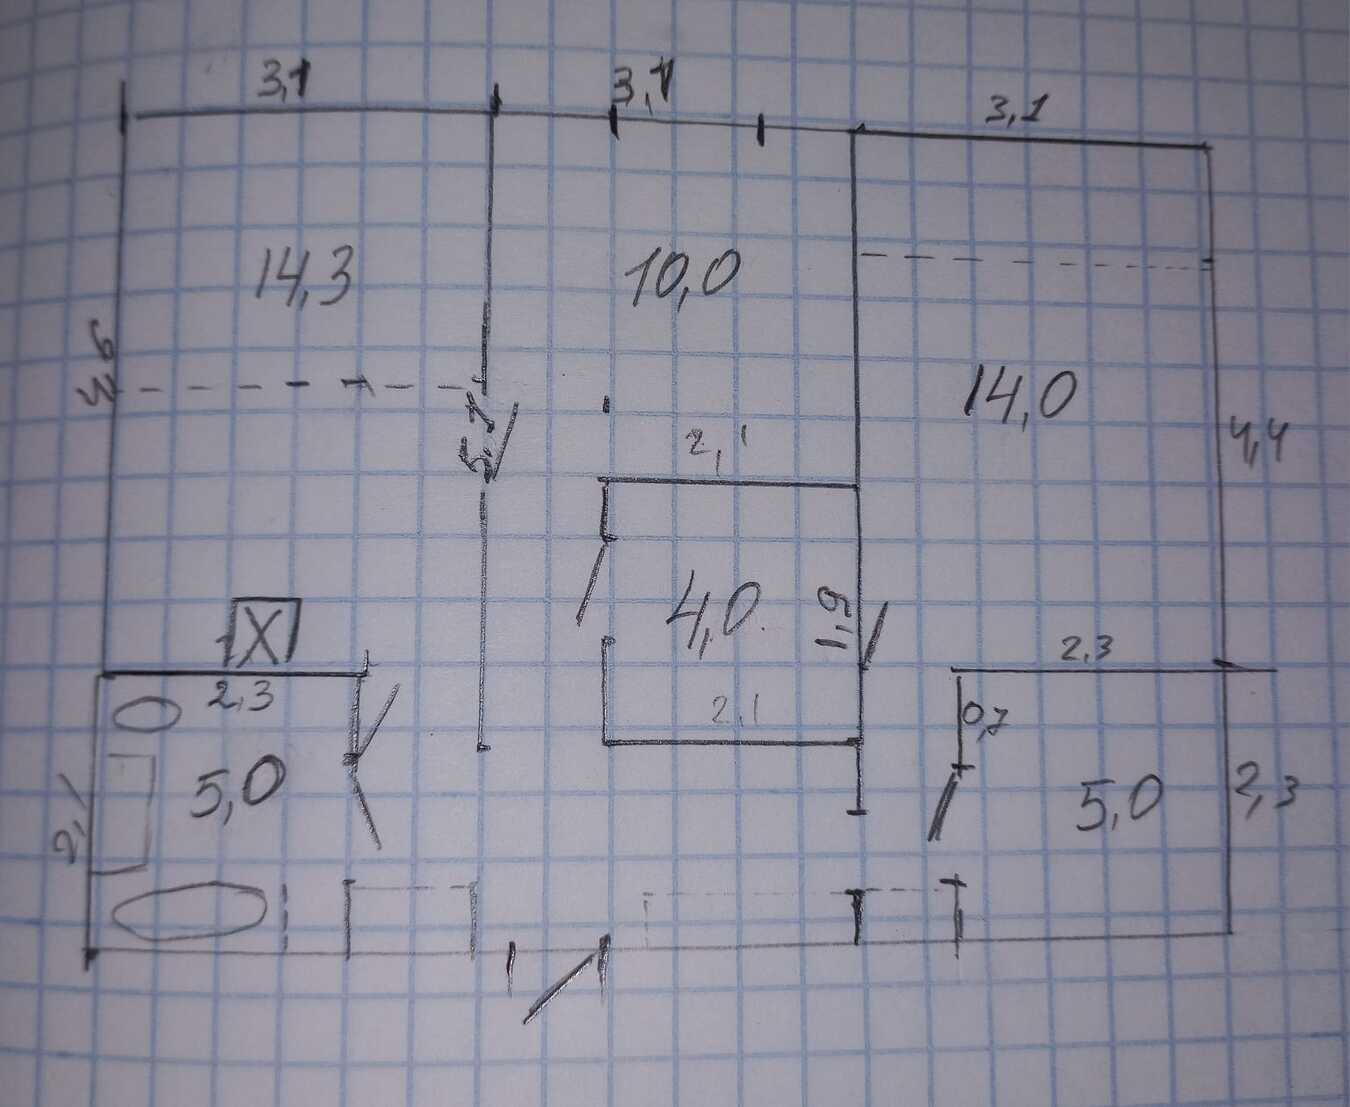 3,1
3,1
3,1
14,3
10,0
14,0
4,6
5,7
2,1
4,4
4,0
1,9
X
2,3
2,3
2,1
0,7
5,0
5,0
2,1
2,3